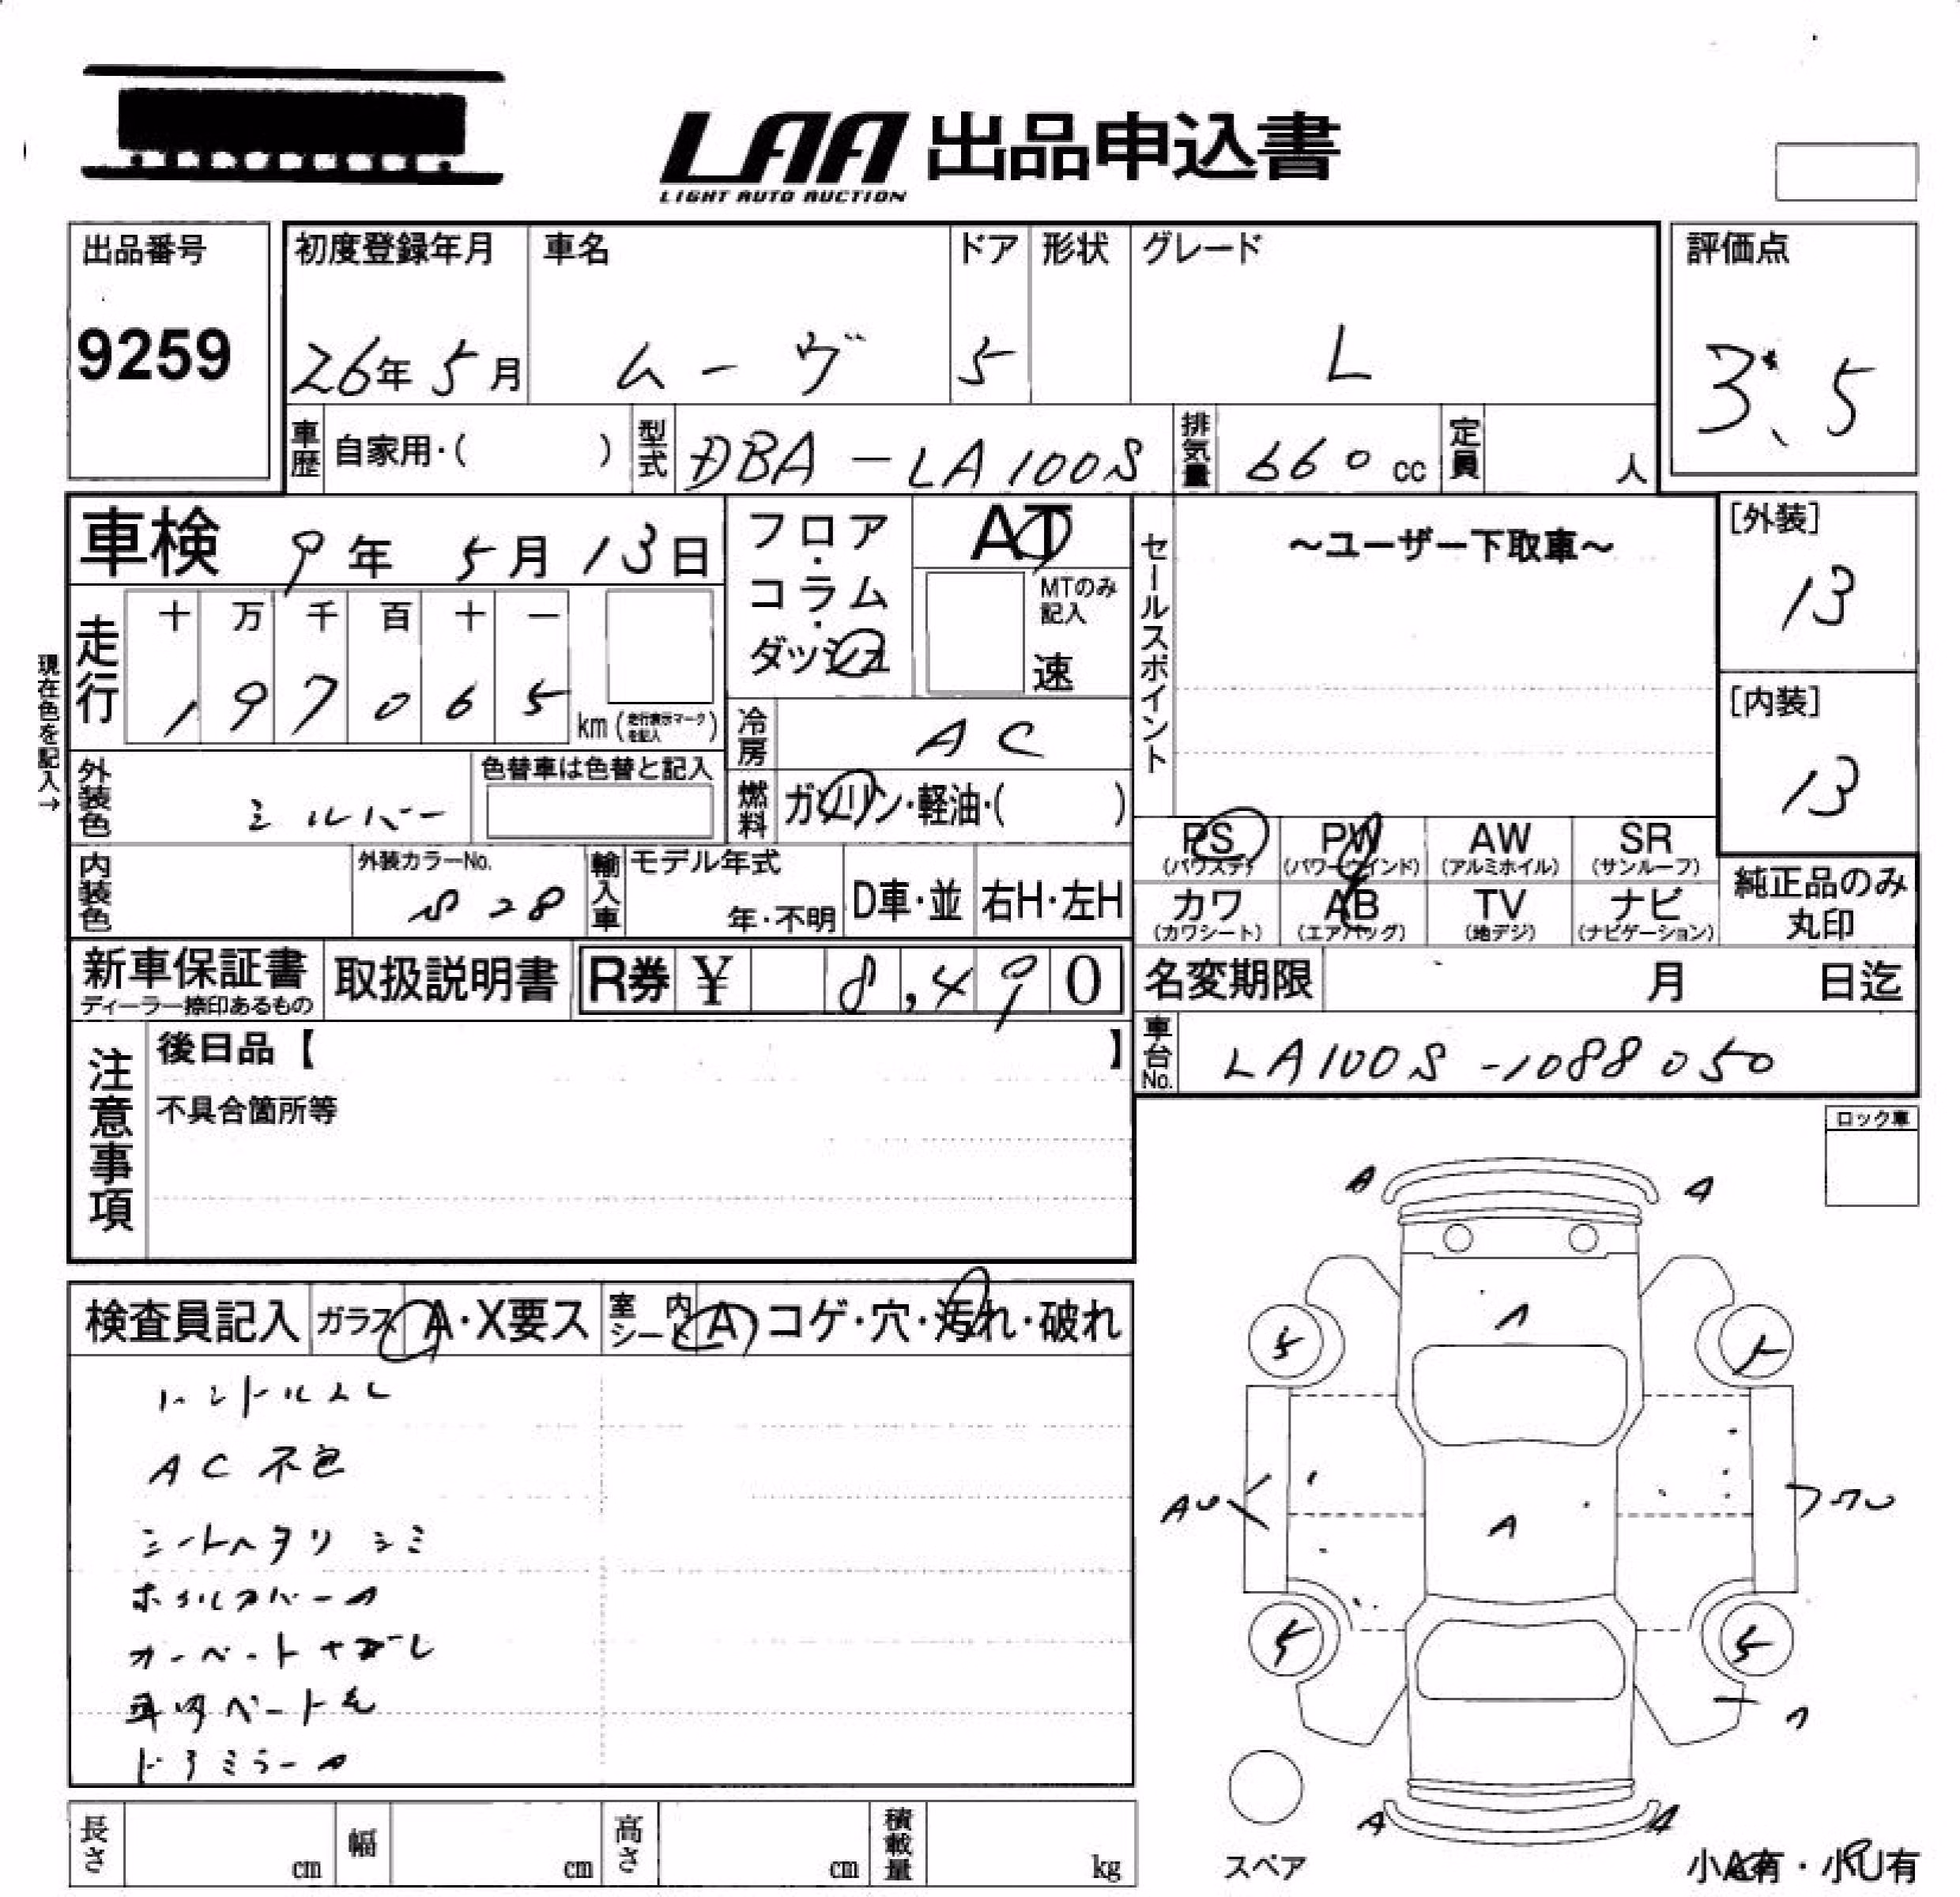 LAA 出品申込書
LIGHT AUTO AUCTION
出品番号
9259
初度登録年月
26年 5月
車名
ムーヴ
ドア
5
形状
グレード
L
評価点
3.5
車歴 自家用・( )
型式 DBA-LA100S
排気量 660 cc
定員 人
車検 9年 5月 13日
フロア・コラム・ダッシュ
AT
MTのみ記入
速
セールスポイント
〜ユーザー下取車〜
[外装]
13
[内装]
13
現在色を記入→
走行
十 万 千 百 十 一
1 9 7 0 6 5
km (走行表示マークを記入)
冷房 AC
外装色 シルバー
色替車は色替と記入
燃料 ガソリン・軽油・( )
内装色
外装カラーNo.
S28
輸入車
モデル年式
年・不明
D車・並
右H・左H
PS (パワステ)
PW (パワーウインド)
AW (アルミホイル)
SR (サンルーフ)
カワ (カワシート)
AB (エアバッグ)
TV (地デジ)
ナビ (ナビゲーション)
純正品のみ丸印
新車保証書
ディーラー捺印あるもの
取扱説明書
R券 ¥ 8,490
名変期限 月 日迄
車台No. LA100S-1088050
注意事項
後日品【 】
不具合箇所等
ロック車
検査員記入
ガラス A・X要ス
室内シート A コゲ・穴・汚れ・破れ
ハンドルスレ
AC不色
シートヘタリ シミ
ホイルカバーA
ドアミラーA
A A
A
5
5 5
A
A A
長さ cm
幅 cm
高さ cm
積載量 kg
スペア
小A有・小U有